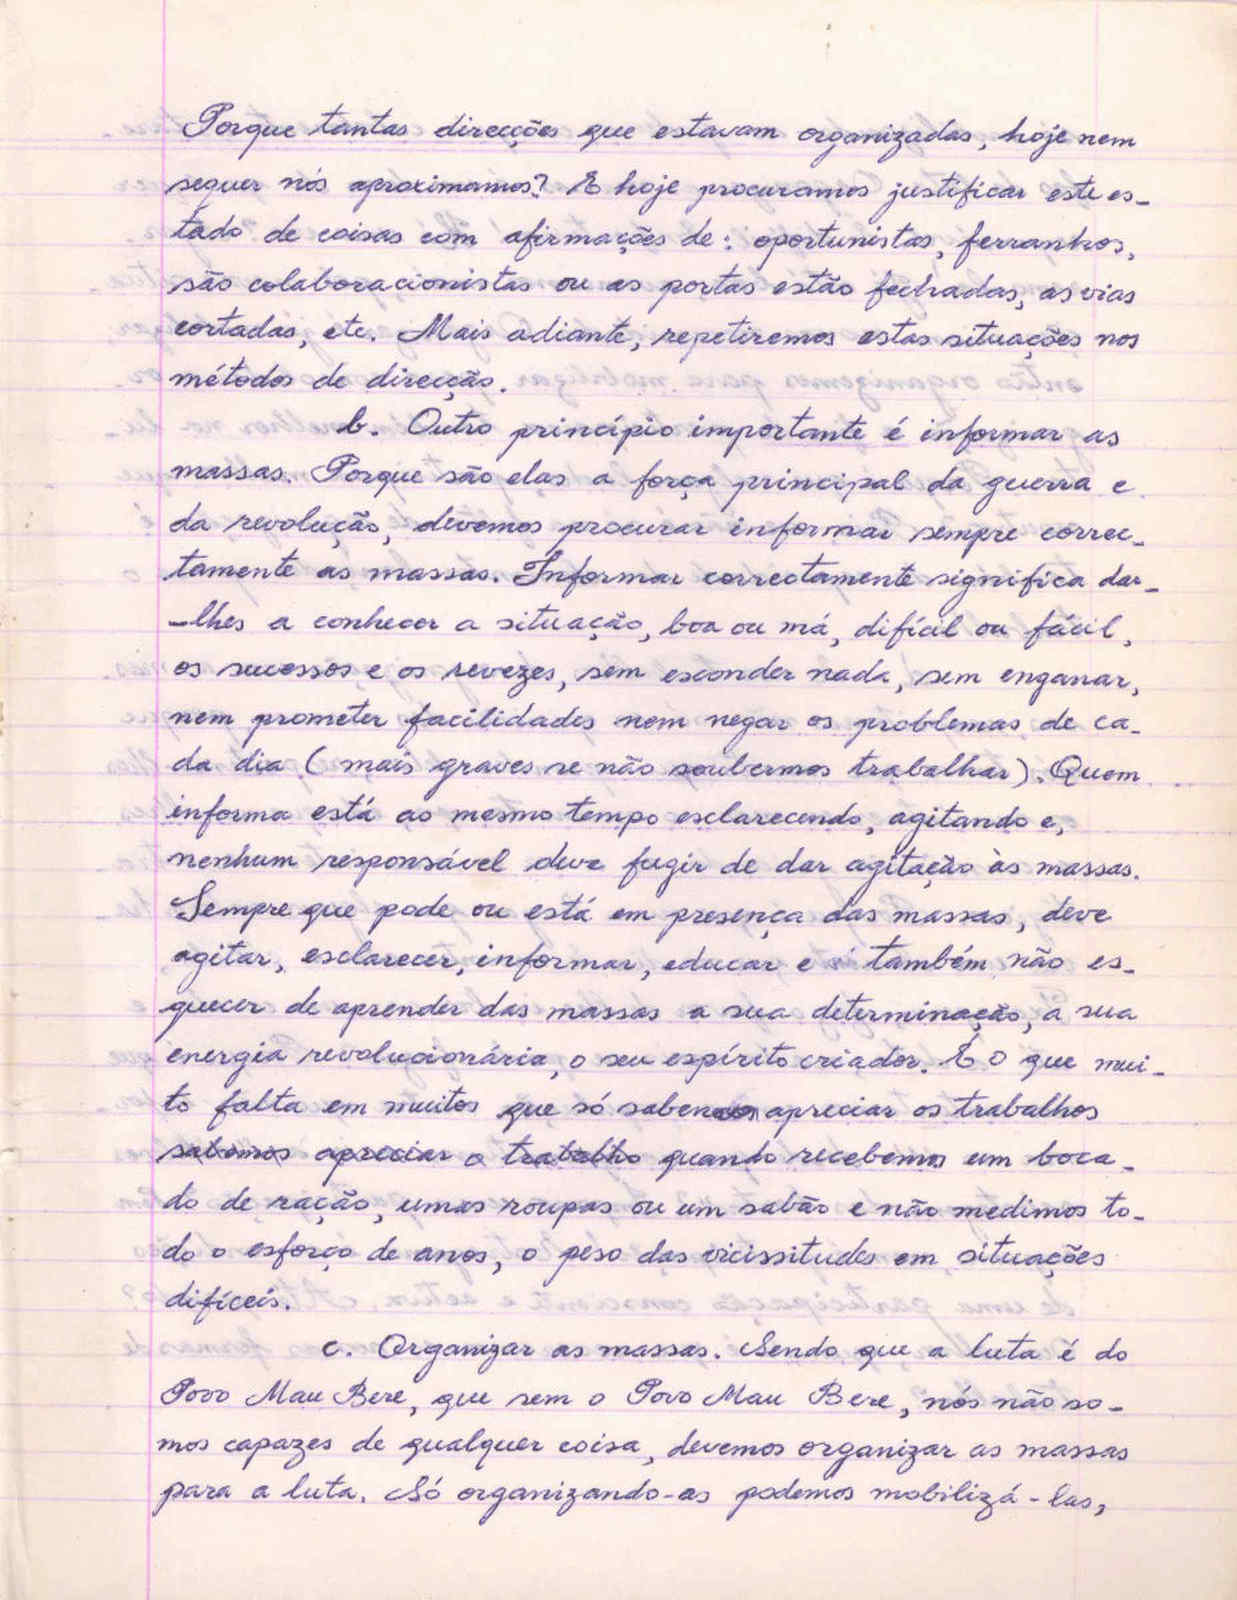 Porque tantas direcções que estavam organizadas, hoje nem
sequer nós aproximamos? E hoje procuramos justificar este es-
tado de coisas com afirmações de: oportunistas, ferranhos,
são colaboracionistas ou as portas estão fechadas, as vias
cortadas, etc. Mais adiante, repetiremos estas situações nos
métodos de direcção.
b. Outro princípio importante é informar as
massas. Porque são elas a força principal da guerra e
da revolução, devemos procurar informar sempre correc-
tamente as massas. Informar correctamente significa dar-
-lhes a conhecer a situação, boa ou má, difícil ou fácil,
os sucessos e os revezes, sem esconder nada, sem enganar,
nem prometer facilidades nem negar os problemas de ca-
da dia (mais graves se não soubermos trabalhar). Quem
informa está ao mesmo tempo esclarecendo, agitando e,
nenhum responsável deve fugir de dar agitação às massas.
Sempre que pode ou está em presença das massas, deve
agitar, esclarecer, informar, educar e também não es-
quecer de aprender das massas a sua determinação, a sua
energia revolucionária, o seu espírito criador. É o que mui-
to falta em muitos que só sabem apreciar os trabalhos
sabemos apreciar o trabalho quando recebemos um boca-
do de ração, umas roupas ou um sabão e não medimos to-
do o esforço de anos, o peso das vicissitudes em situações
difíceis.
c. Organizar as massas. Sendo que a luta é do
Povo Mau Bere, que sem o Povo Mau Bere, nós não so-
mos capazes de qualquer coisa, devemos organizar as massas
para a luta. Só organizando-as podemos mobilizá-las,